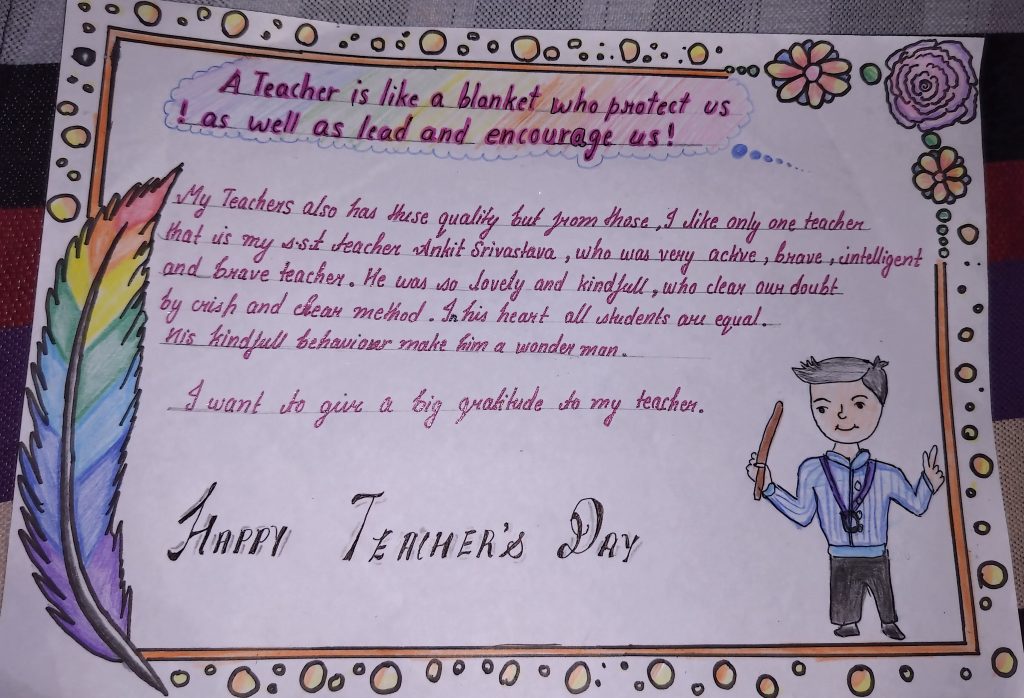 A Teacher is like a blanket who protect us
! as well as lead and encourage us!
My Teachers also has these quality but from those, I like only one teacher
that is my s.s.t teacher Ankit Srivastava, who was very active, brave, intelligent
and brave teacher. He was so lovely and kindfull, who clear our doubt
by crish and clear method. In his heart all students are equal.
His kindfull behaviour make him a wonder man.
I want to give a big gratitude to my teacher.
Happy Teacher's Day